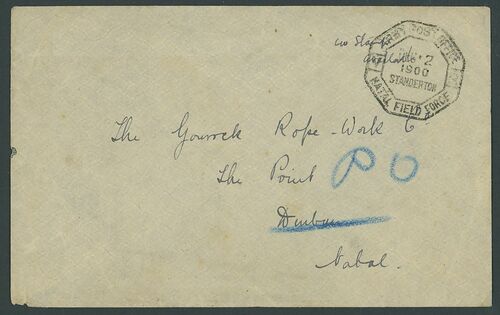 no Stamps
available
ARMY POST OFFICE
2
1900
STANDERTON
NATAL FIELD FORCE
The Gourock Rope-Work Co
The Point
PO
Durban
Natal.